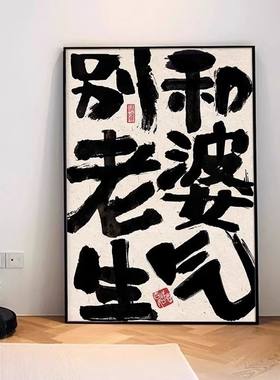 别和
老婆
生气